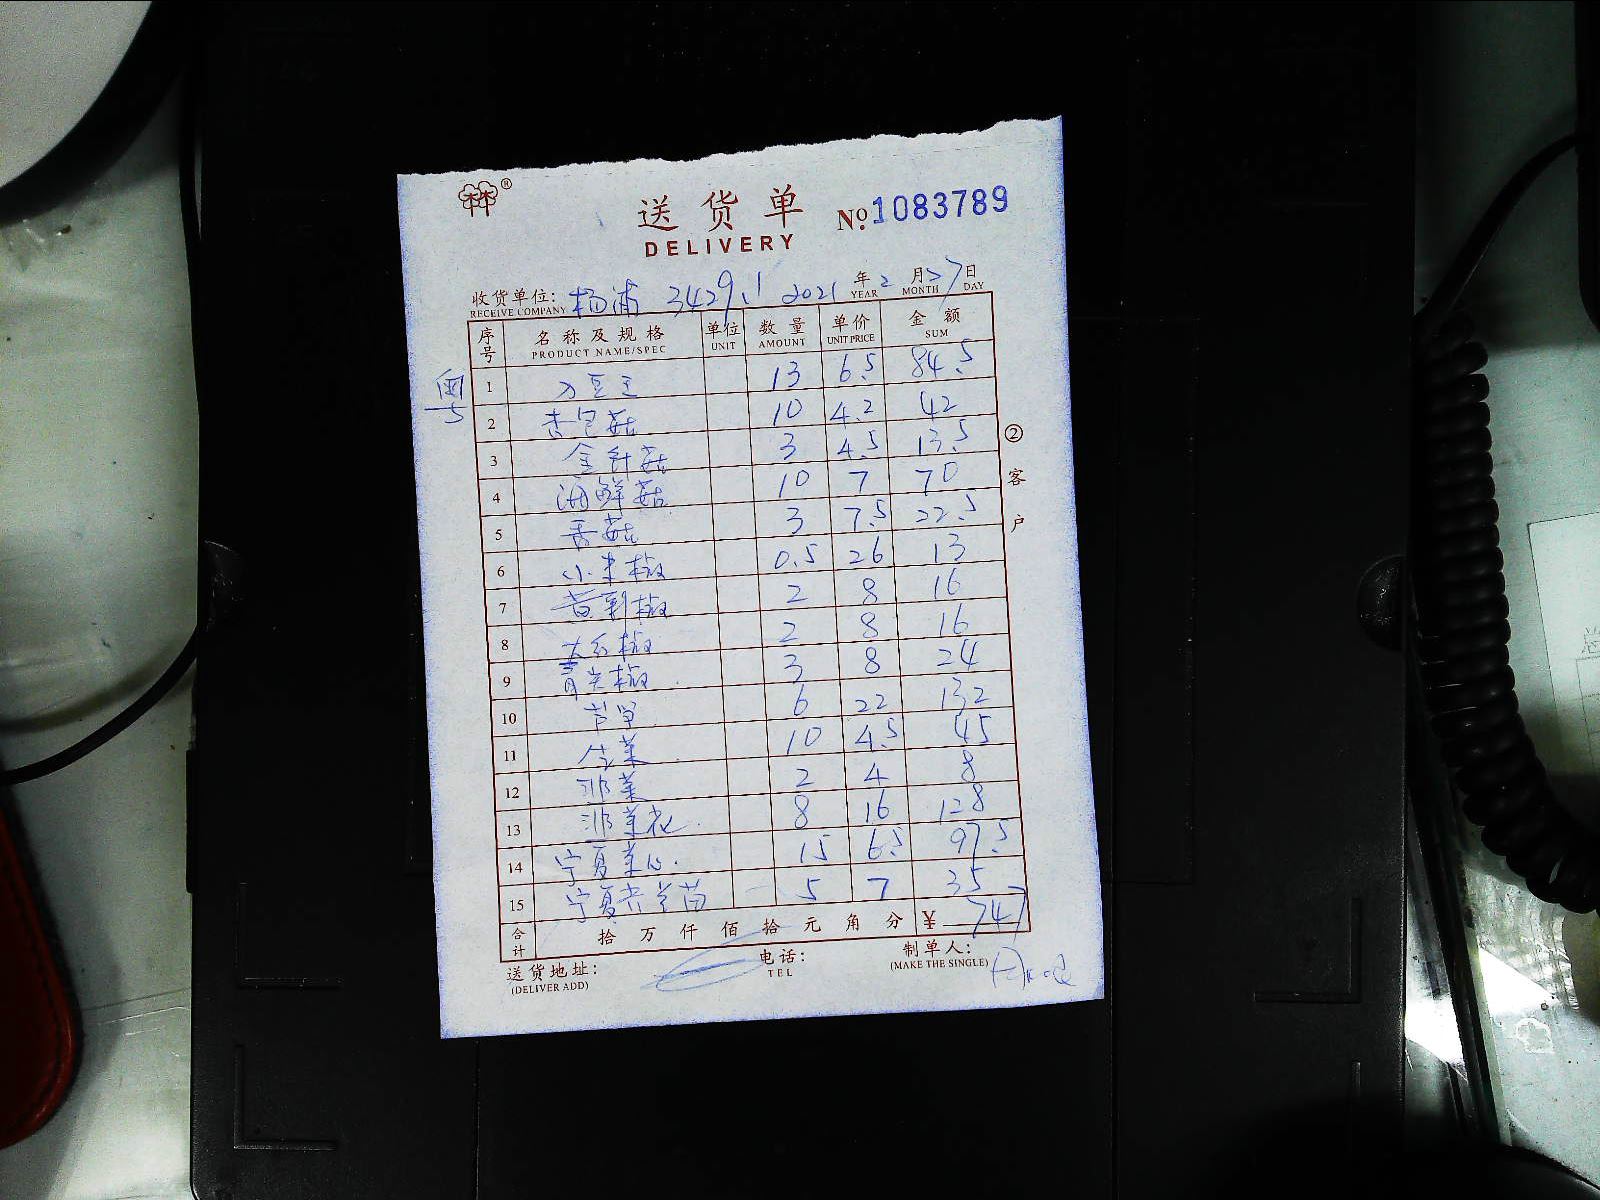 林®
送货单 №1083789
DELIVERY
收货单位: 杨浦 3429.1 2021 年 2 月 27 日
RECEIVE COMPANY YEAR MONTH DAY
序号 名称及规格 单位 数量 单价 金额
PRODUCT NAME/SPEC UNIT AMOUNT UNIT PRICE SUM
粤5
1 豆王 13 6.5 84.5
2 杏包菇 10 4.2 42
3 金针菇 3 4.5 13.5
4 海鲜菇 10 7 70
5 香菇 3 7.5 22.5
6 小米椒 0.5 26 13
7 黄彩椒 2 8 16
8 大红椒 2 8 16
9 青尖椒 3 8 24
10 芦笋 6 22 132
11 生菜 10 4.5 45
12 菠菜 2 4 8
13 菜花 8 16 128
14 宁夏菜心 15 6.5 97.5
15 宁夏苗 5 7 35
合计 拾 万 仟 佰 拾 元 角 分 ¥ 747
送货地址: 电话: 制单人:
(DELIVER ADD) TEL (MAKE THE SINGLE)
② 客户